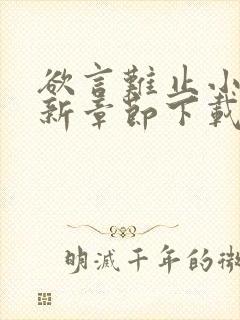 欲言難止小
新章節下載
明滅千年的微